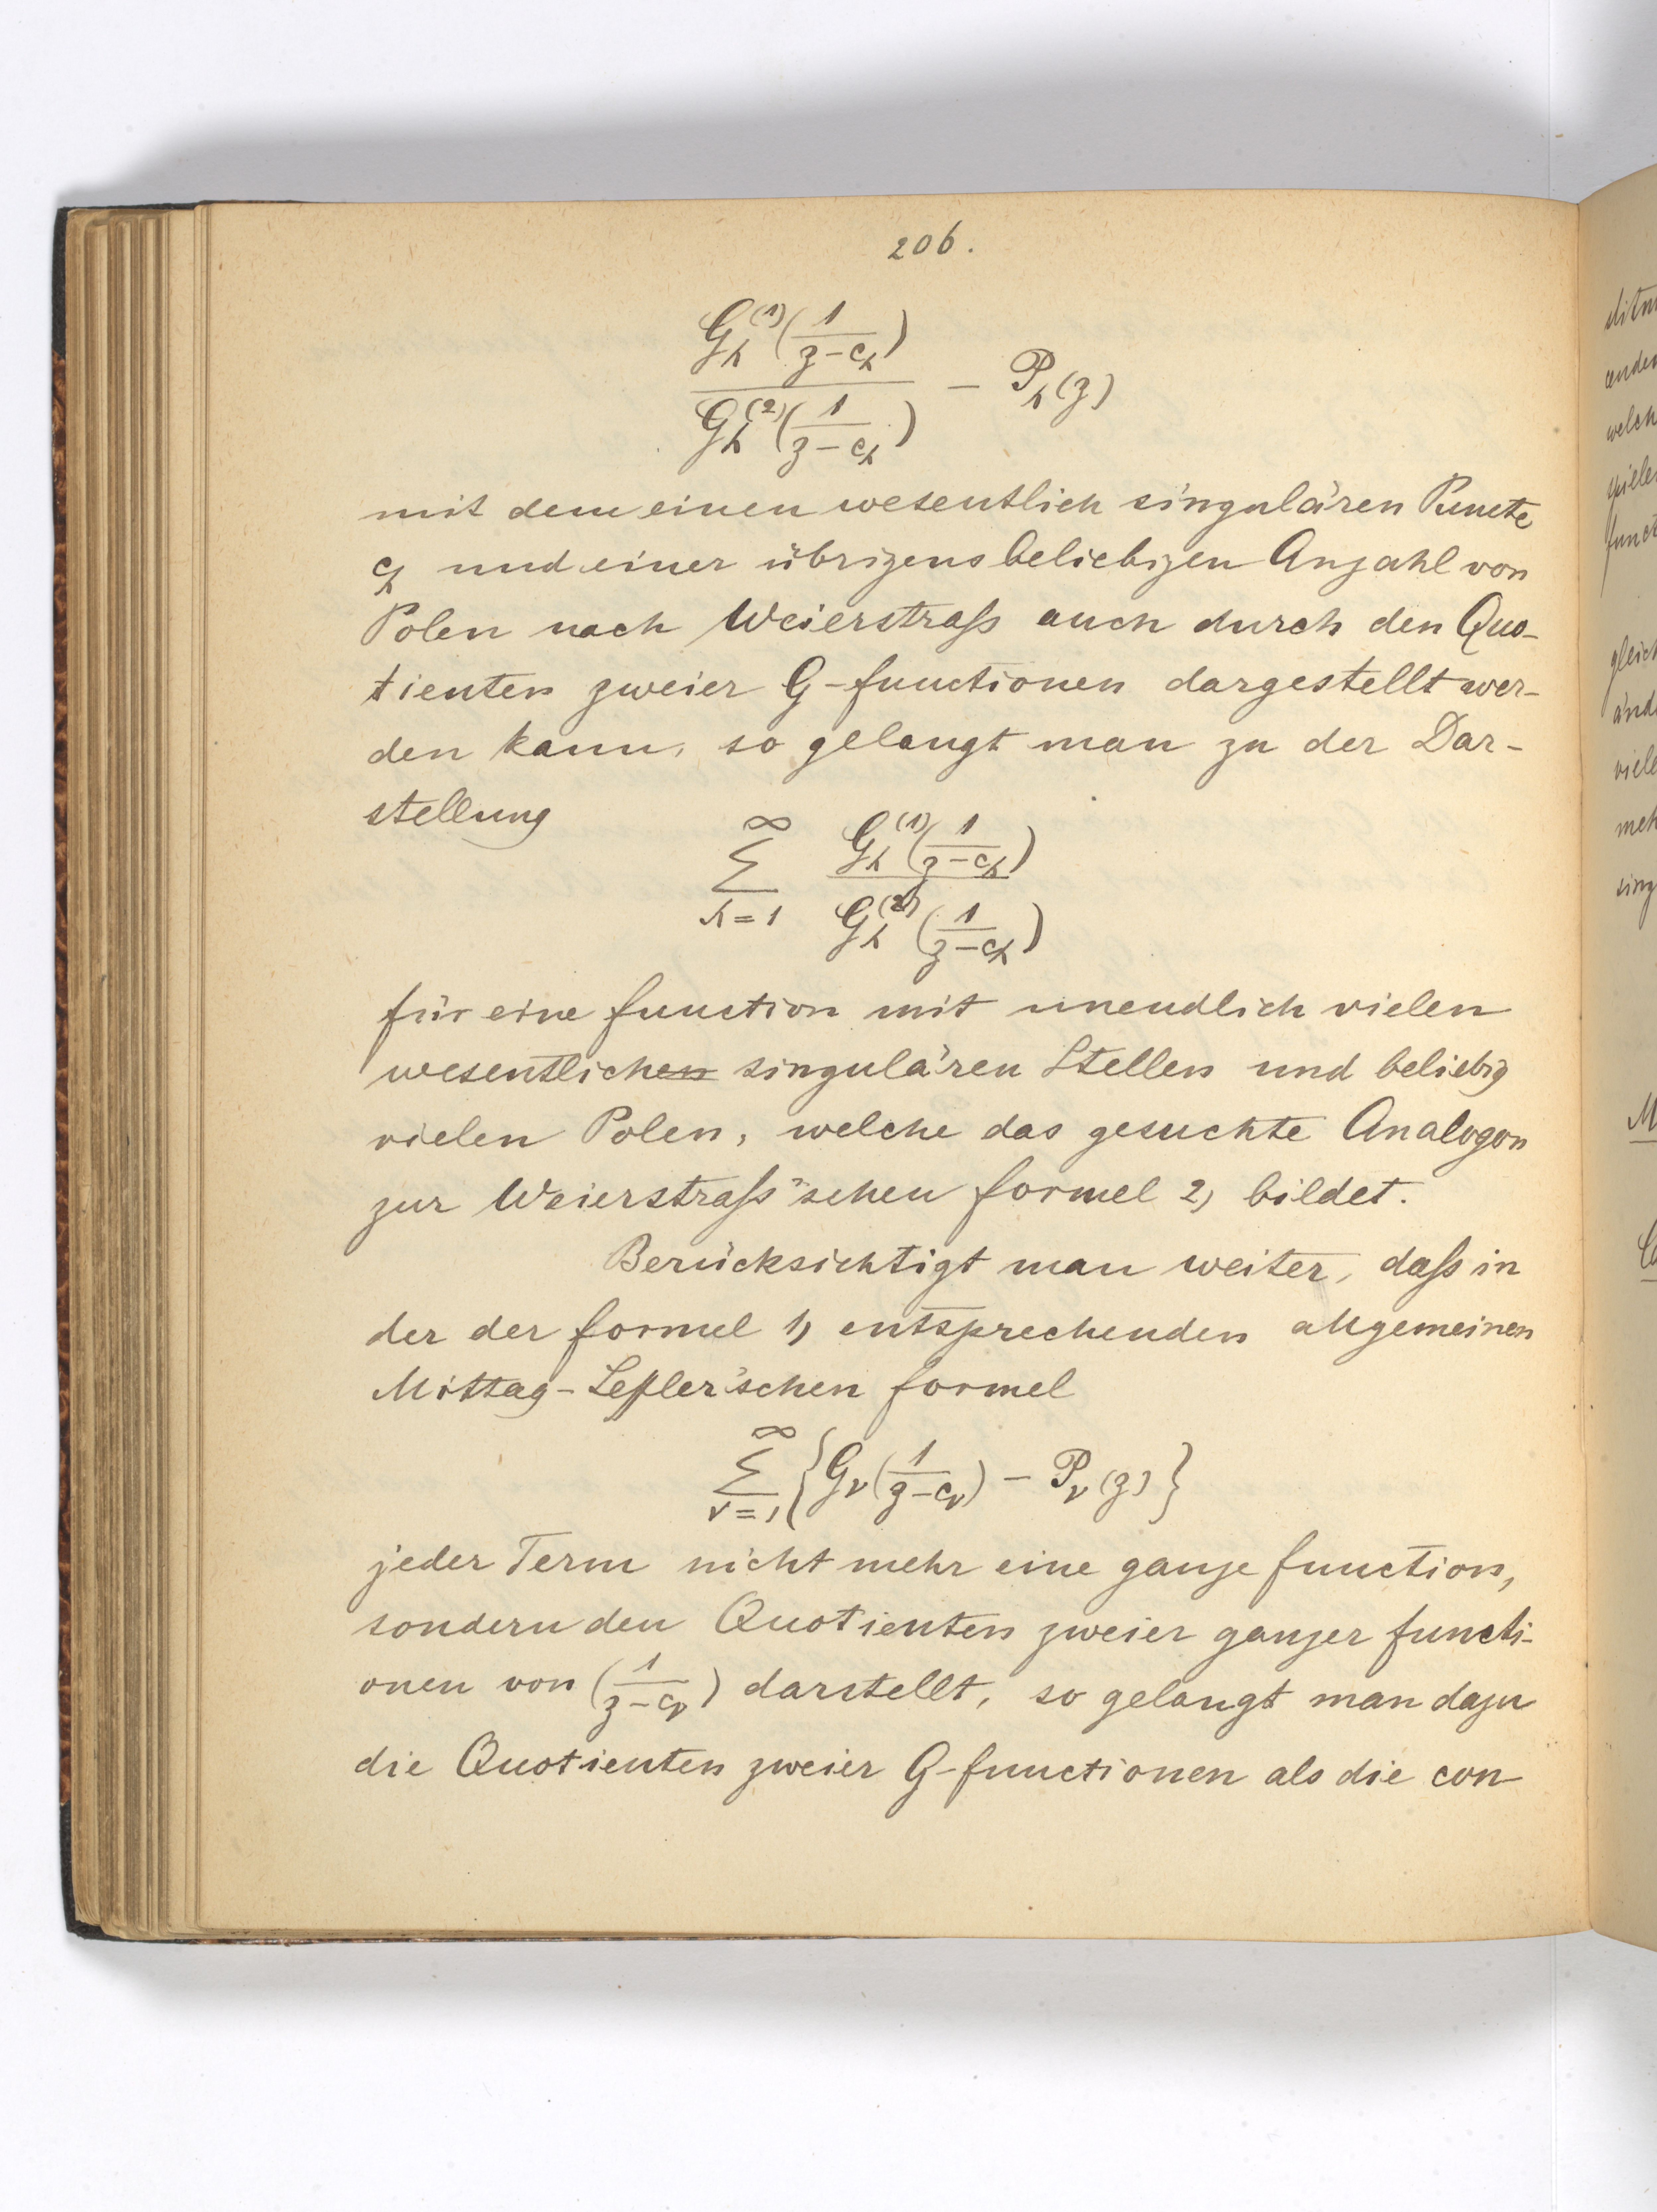 206.
G_h^{(1)}(1/(z-c_h)) / G_h^{(2)}(1/(z-c_h)) - P_h(z)
mit dem einen wesentlich singulären Puncte
c_h und einer übrigens beliebigen Anzahl von
Polen nach Weierstraß auch durch den Quo-
tienten zweier G-functionen dargestellt wer-
den kann, so gelangt man zu der Dar-
stellung
∑_{h=1}^{∞} G_h^{(1)}(1/(z-c_h)) / G_h^{(2)}(1/(z-c_h))
für eine function mit unendlich vielen
wesentlichen singulären Stellen und beliebig
vielen Polen, welche das gesuchte Analogon
zur Weierstraß'schen formel 2) bildet.
Berücksichtigt man weiter, daß in
der der formel 1) entsprechenden allgemeinen
Mittag-Lefler'schen formel
∑_{ν=1}^{∞} {G_ν(1/(z-c_ν)) - P_ν(z)}
jeder Term nicht mehr eine ganze function,
sondern den Quotienten zweier ganzer functi-
onen von (1/(z-c_ν)) darstellt, so gelangt man dazu
die Quotienten zweier G-functionen als die con-